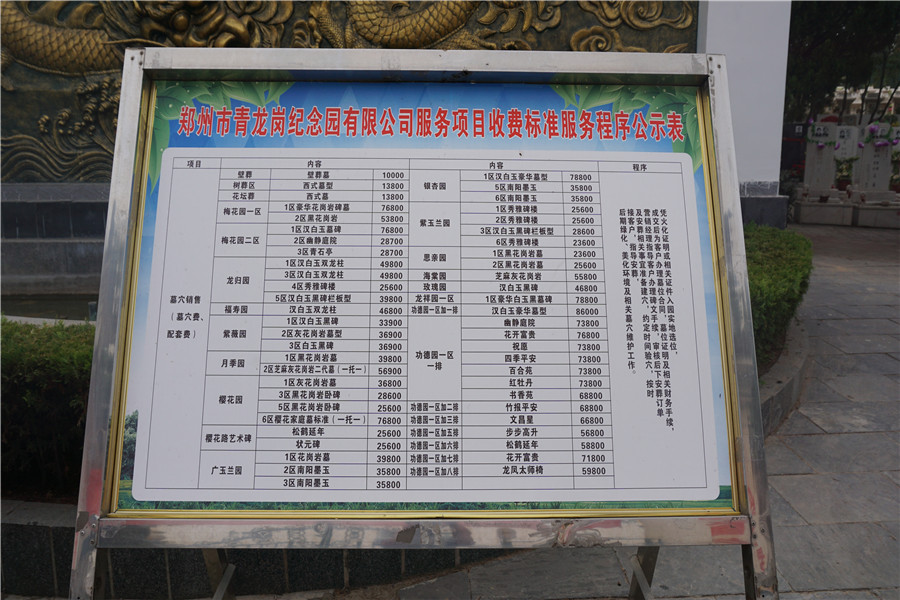 郑州市青龙岗纪念园有限公司服务项目收费标准服务程序公示表
项目 内容 内容 程序
墓穴销售
（墓穴费、
配套费）
壁葬 壁葬墓 10000
树葬区 西式墓型 13800
花坛葬 西式墓 13800
梅花园一区 1区豪华花岗岩碑墓 76800
2区黑花岗岩 53800
梅花园二区 1区汉白玉墓碑 76800
2区幽静庭院 28700
3区青石亭 28700
龙归园 1区汉白玉双龙柱 49800
3区汉白玉双龙柱 49800
4区秀雅碑楼 25600
5区汉白玉黑碑栏板型 39800
福寿园 汉白玉双龙柱 46800
紫薇园 1区汉白玉黑碑 33900
2区灰花岗岩墓型 36900
3区白玉黑碑 36900
月季园 1区黑花岗岩墓 39800
2区芝麻灰花岗岩二代墓（一托一） 56900
樱花园 1区灰花岗岩墓 36800
3区黑花岗岩卧碑 28600
5区黑花岗岩卧碑 25600
6区樱花家庭墓标准（一托一） 76800
樱花路艺术碑 松鹤延年 25600
状元碑 25600
广玉兰园 1区花岗岩墓 39800
2区南阳墨玉 35800
3区南阳墨玉 35800
银杏园 1区汉白玉豪华墓型 78800
5区南阳墨玉 35800
6区南阳墨玉 25600
紫玉兰园 1区秀雅碑楼 25600
2区秀雅碑楼 25600
3区汉白玉黑碑栏板型 28600
6区秀雅碑楼 23600
思亲园 1区黑花岗岩墓 23600
2区黑花岗岩墓 25600
海棠园 芝麻灰花岗岩 55800
玫瑰园 汉白玉墓 46800
龙祥园一区 1区豪华汉白玉黑墓碑 78800
功德园一区加一排 汉白玉豪华墓型 86000
功德园一区
一排
幽静庭院 73800
花开富贵 76800
祝愿 73800
四季平安 73800
百合苑 73800
红牡丹 73800
书香苑 68800
功德园一区加二排 竹报平安 68800
功德园一区加三排 文昌星 66800
功德园一区加五排 步步高升 56800
功德园一区加六排 松鹤延年 58800
功德园一区加七排 花开富贵 71800
功德园一区加八排 龙凤太师椅 59800
凭火化证明或相关证件入园实地选位，
成交后为客户办理墓位合同，墓位证明及相关财务手续，
营销经理指导客户办理碑文手续，审核后下安葬订单
及安葬相关事宜准备建穴，约定时间验穴，按时
接客户，指导安葬；
后期绿化、美化环境及相关墓穴维护工作。